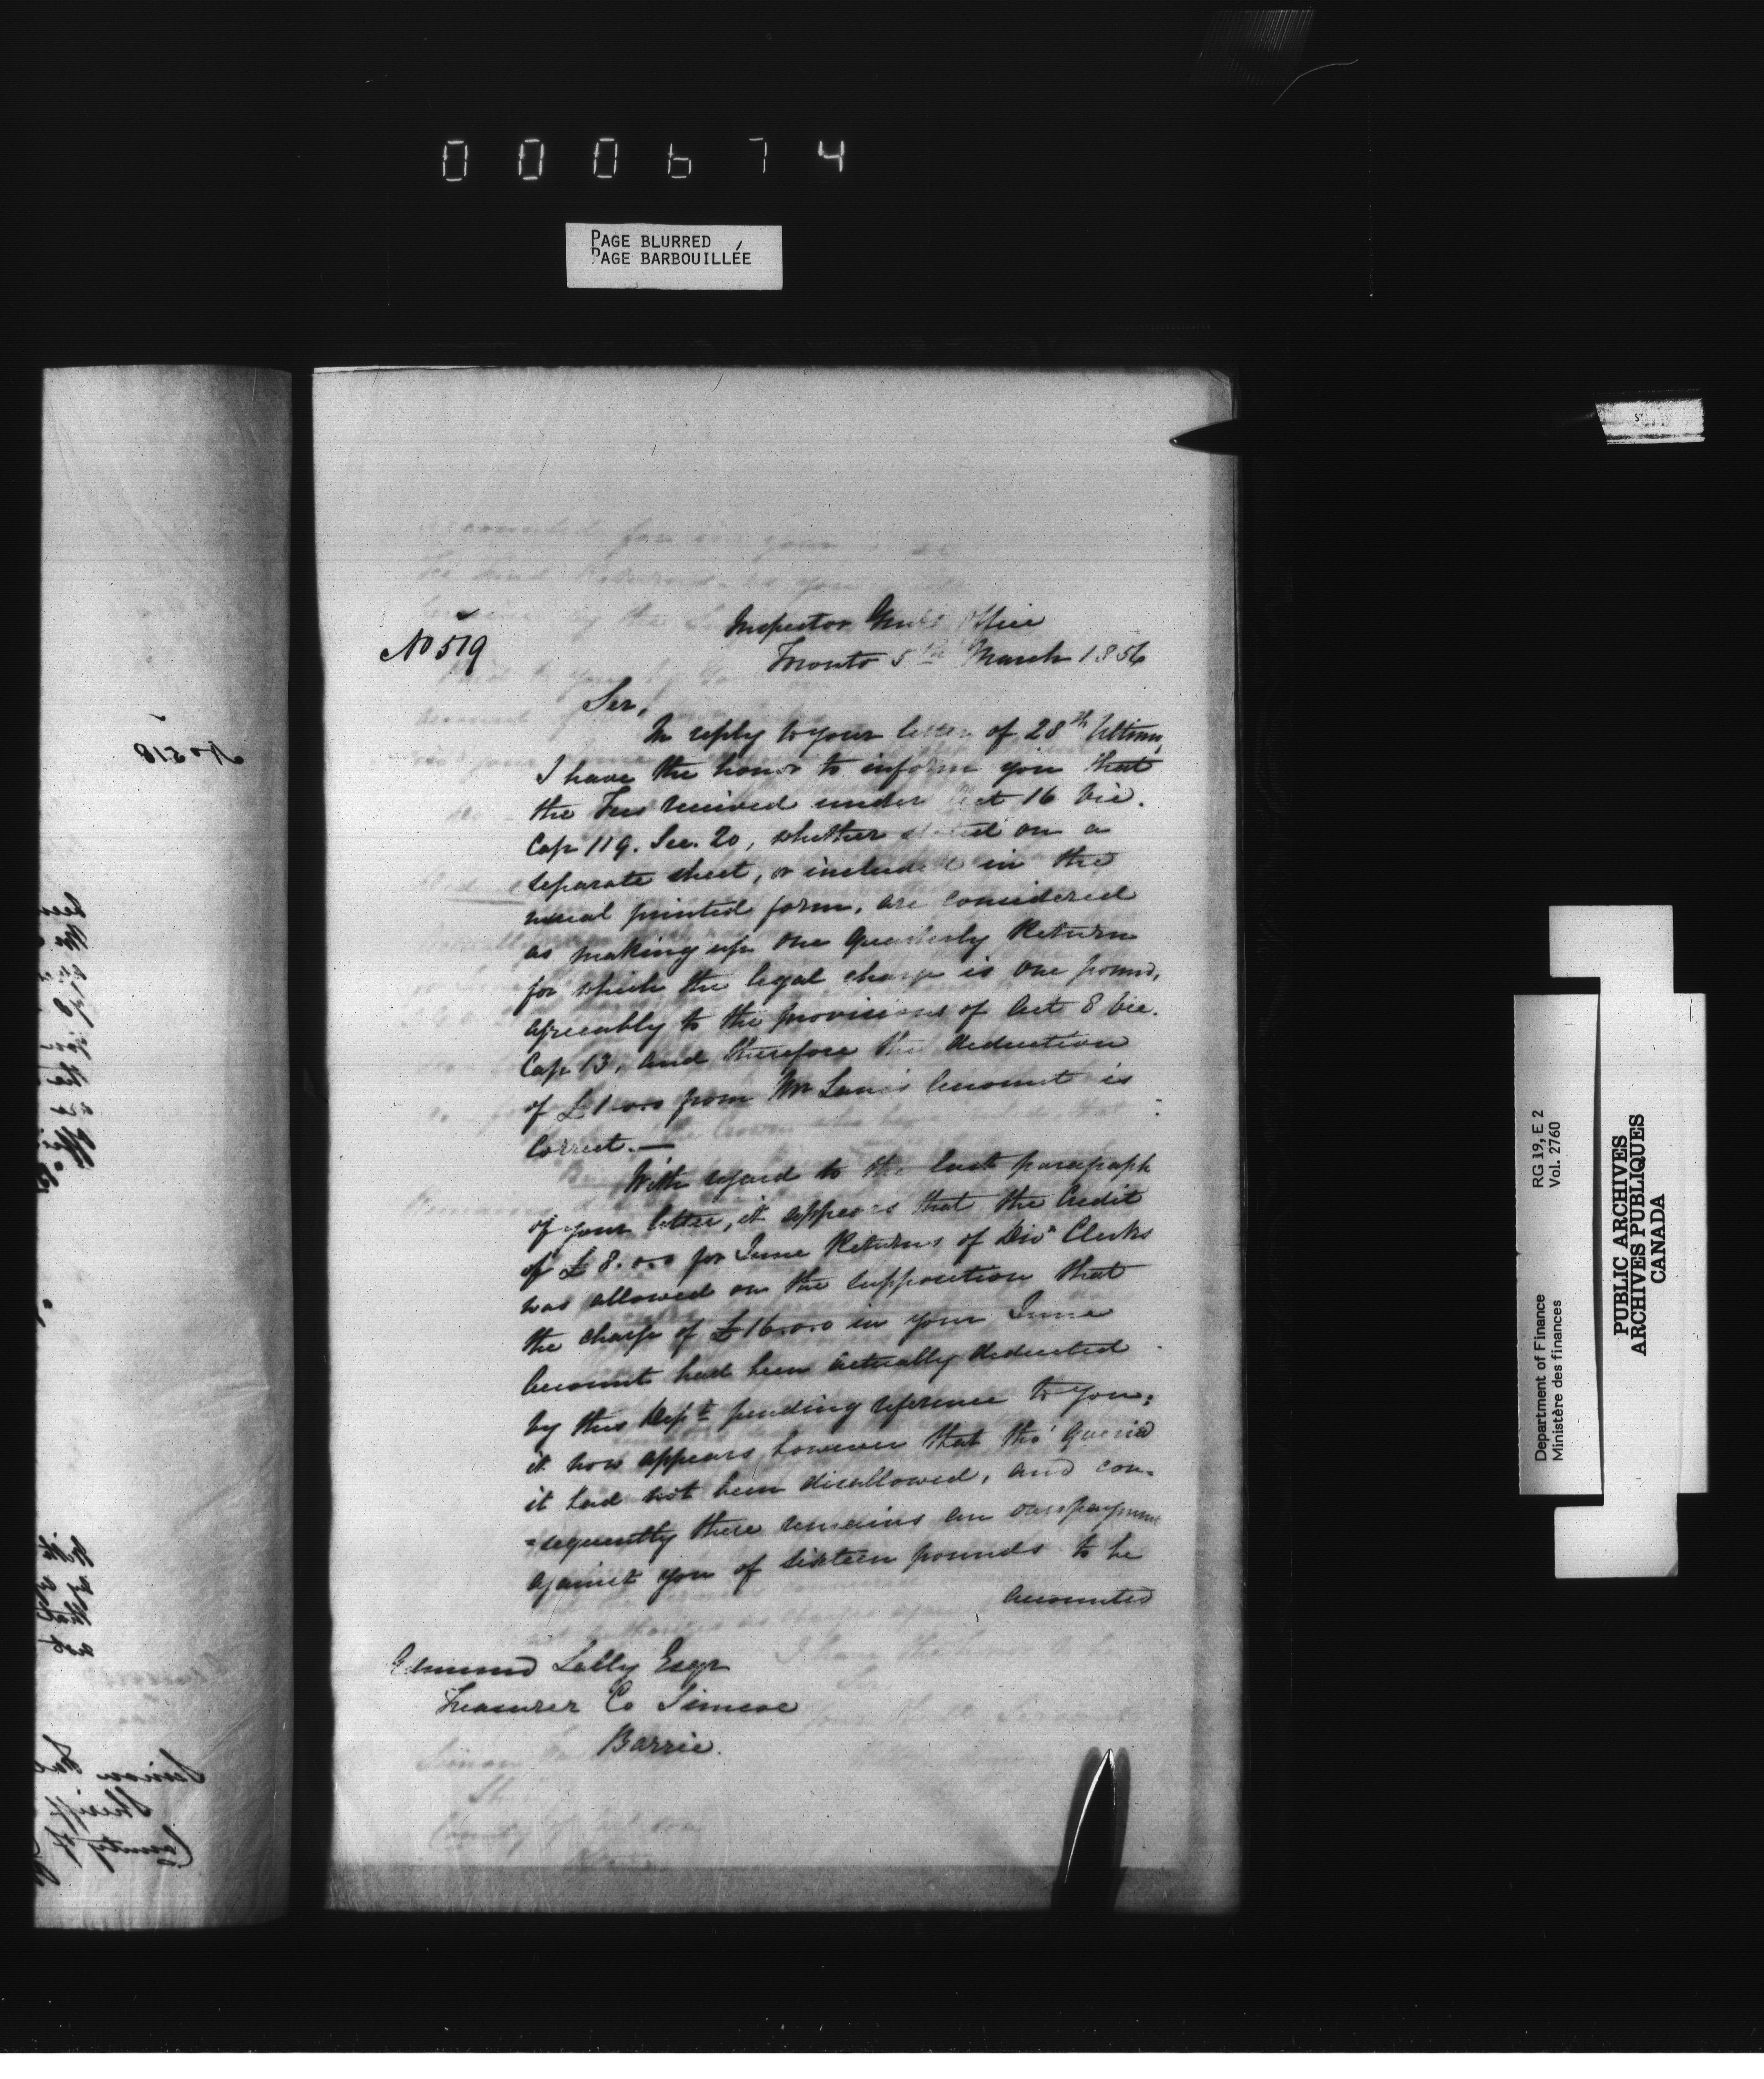 000674
PAGE BLURRED
PAGE BARBOUILLÉE
No 519
Inspector Genl's Office
Toronto 5th March 1856
Sir,
In reply to your letter of 28th Ultimo,
I have the honor to inform you that
the Fees received under Act 16 Vic.
Cap 119. Sec. 20, whether stated on a
separate sheet, or included in the
usual printed form, are considered
as making up one Quarterly Return
for which the legal charge is one pound,
agreeably to the provisions of Act 8 Vic.
Cap 13, and therefore the deduction
of £1-0-0 from Mr Account is
correct.—
With regard to the last paragraph
of your letter, it appears that the Credit
of £8.0.0 for June Returns of Divn Clerks
was allowed on the supposition that
the charge of £16.0.0 in your June
Account had been actually deducted
by this Dept pending reference to you;
it now appears, however that tho' Queried
it had not been disallowed, and con-
=sequently there remains an overpayment
against you of sixteen pounds to be
accounted
Edmund Lally Esqr
Treasurer Co Simcoe
Barrie.
No 518
Department of Finance RG 19, E 2
Ministère des finances Vol. 2760
PUBLIC ARCHIVES
ARCHIVES PUBLIQUES
CANADA